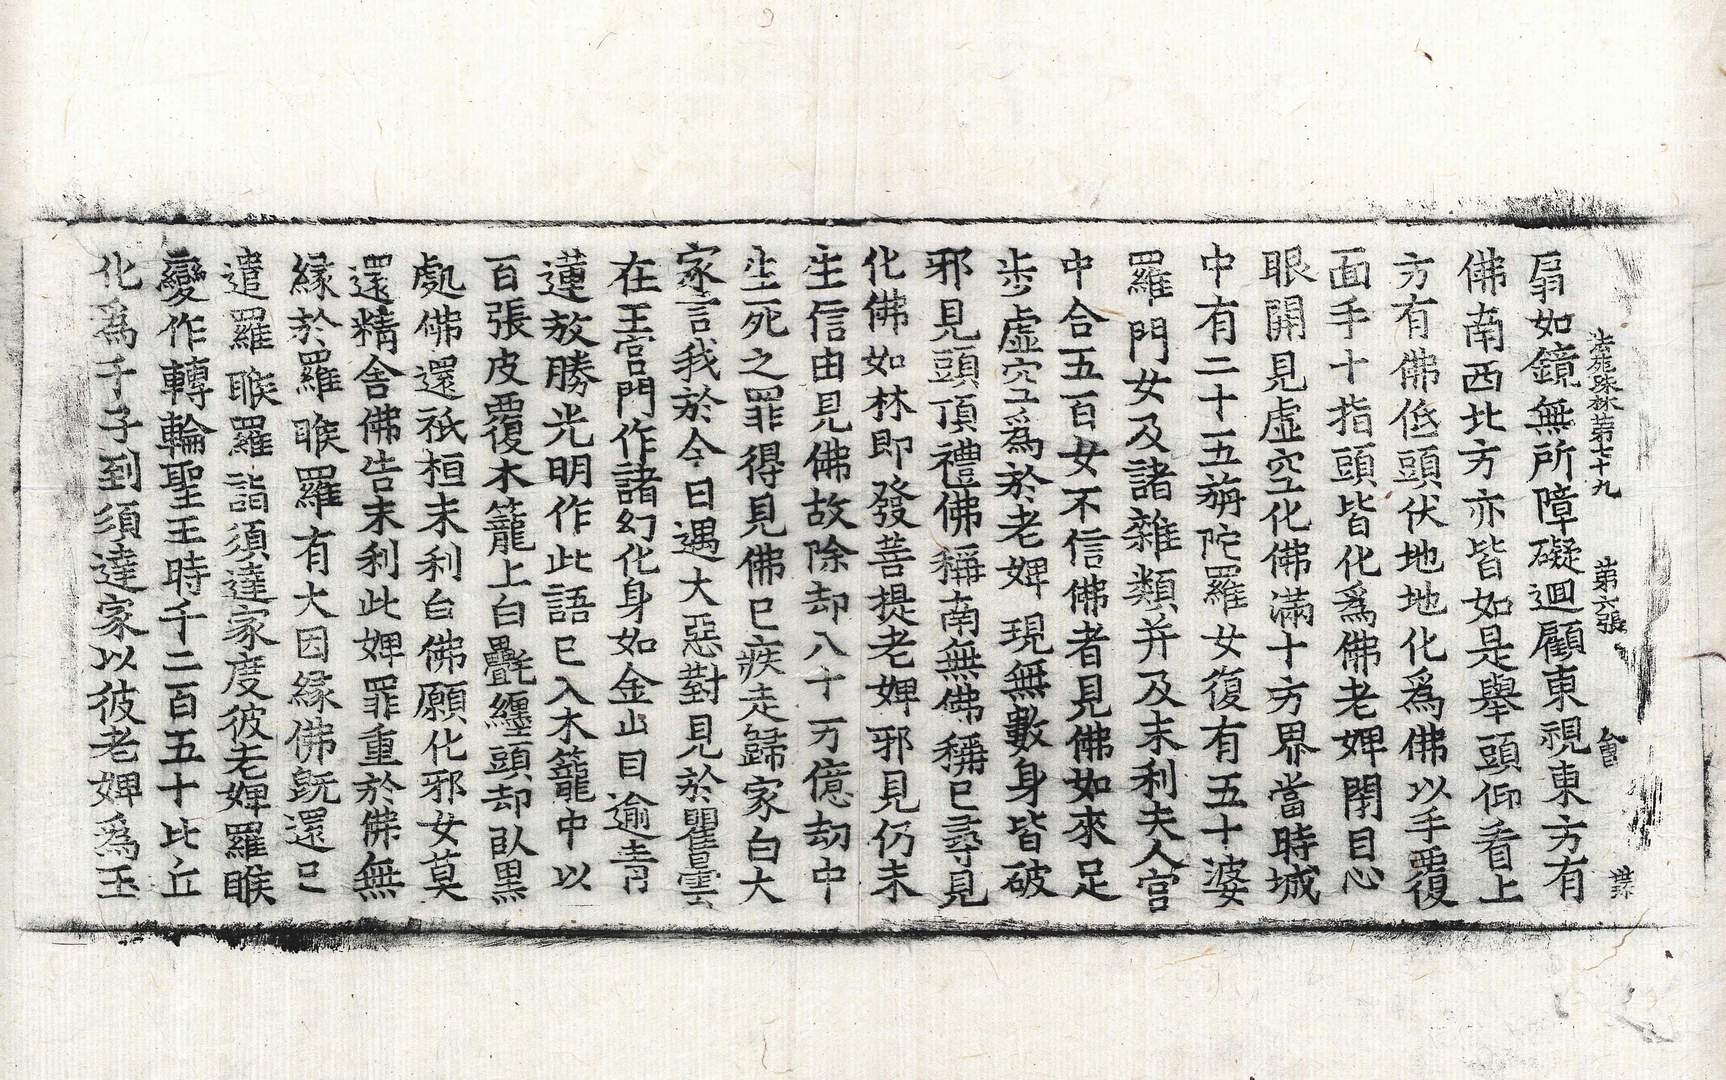 法苑珠林第七十九　第六張　會
扇如鏡無所障礙迴顧東視東方有
佛南西北方亦皆如是舉頭仰看上
方有佛低頭伏地地化爲佛以手覆
面手十指頭皆化爲佛老婢閉目心
眼開見虛空化佛滿十方界當時城
中有二十五旃陀羅女復有五十婆
羅門女及諸雜類并及末利夫人宮
中合五百女不信佛者見佛如來足
步虛空爲於老婢現無數身皆破
邪見頭頂禮佛稱南無佛稱已尋見
化佛如林即發菩提老婢邪見仍未
生信由見佛故除却八十万億劫中
生死之罪得見佛已疾走歸家白大
家言我於今日遇大惡對見於瞿曇
在王宮門作諸幻化身如金山目逾青
蓮放勝光明作此語已入木籠中以
百張皮覆木籠上白㲲纏頭却臥黑
處佛還祇桓末利白佛願化邪女莫
還精舍佛告末利此婢罪重於佛無
緣於羅睺羅有大因緣佛旣還已
遣羅睺羅詣須達家度彼老婢羅睺
變作轉輪聖王時千二百五十比丘
化爲千子到須達家以彼老婢爲玉